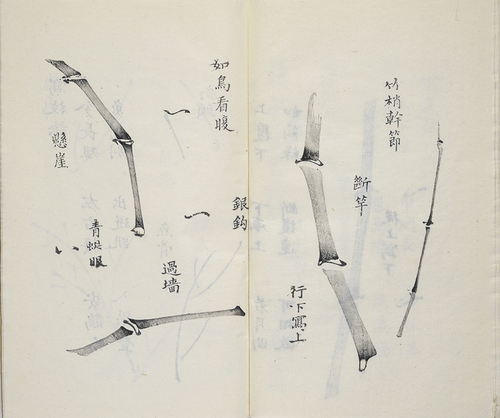 竹梢幹節
斷竿
行下寫上
如鳥看腹
銀鈎
過墻
懸崖
青蜓眼